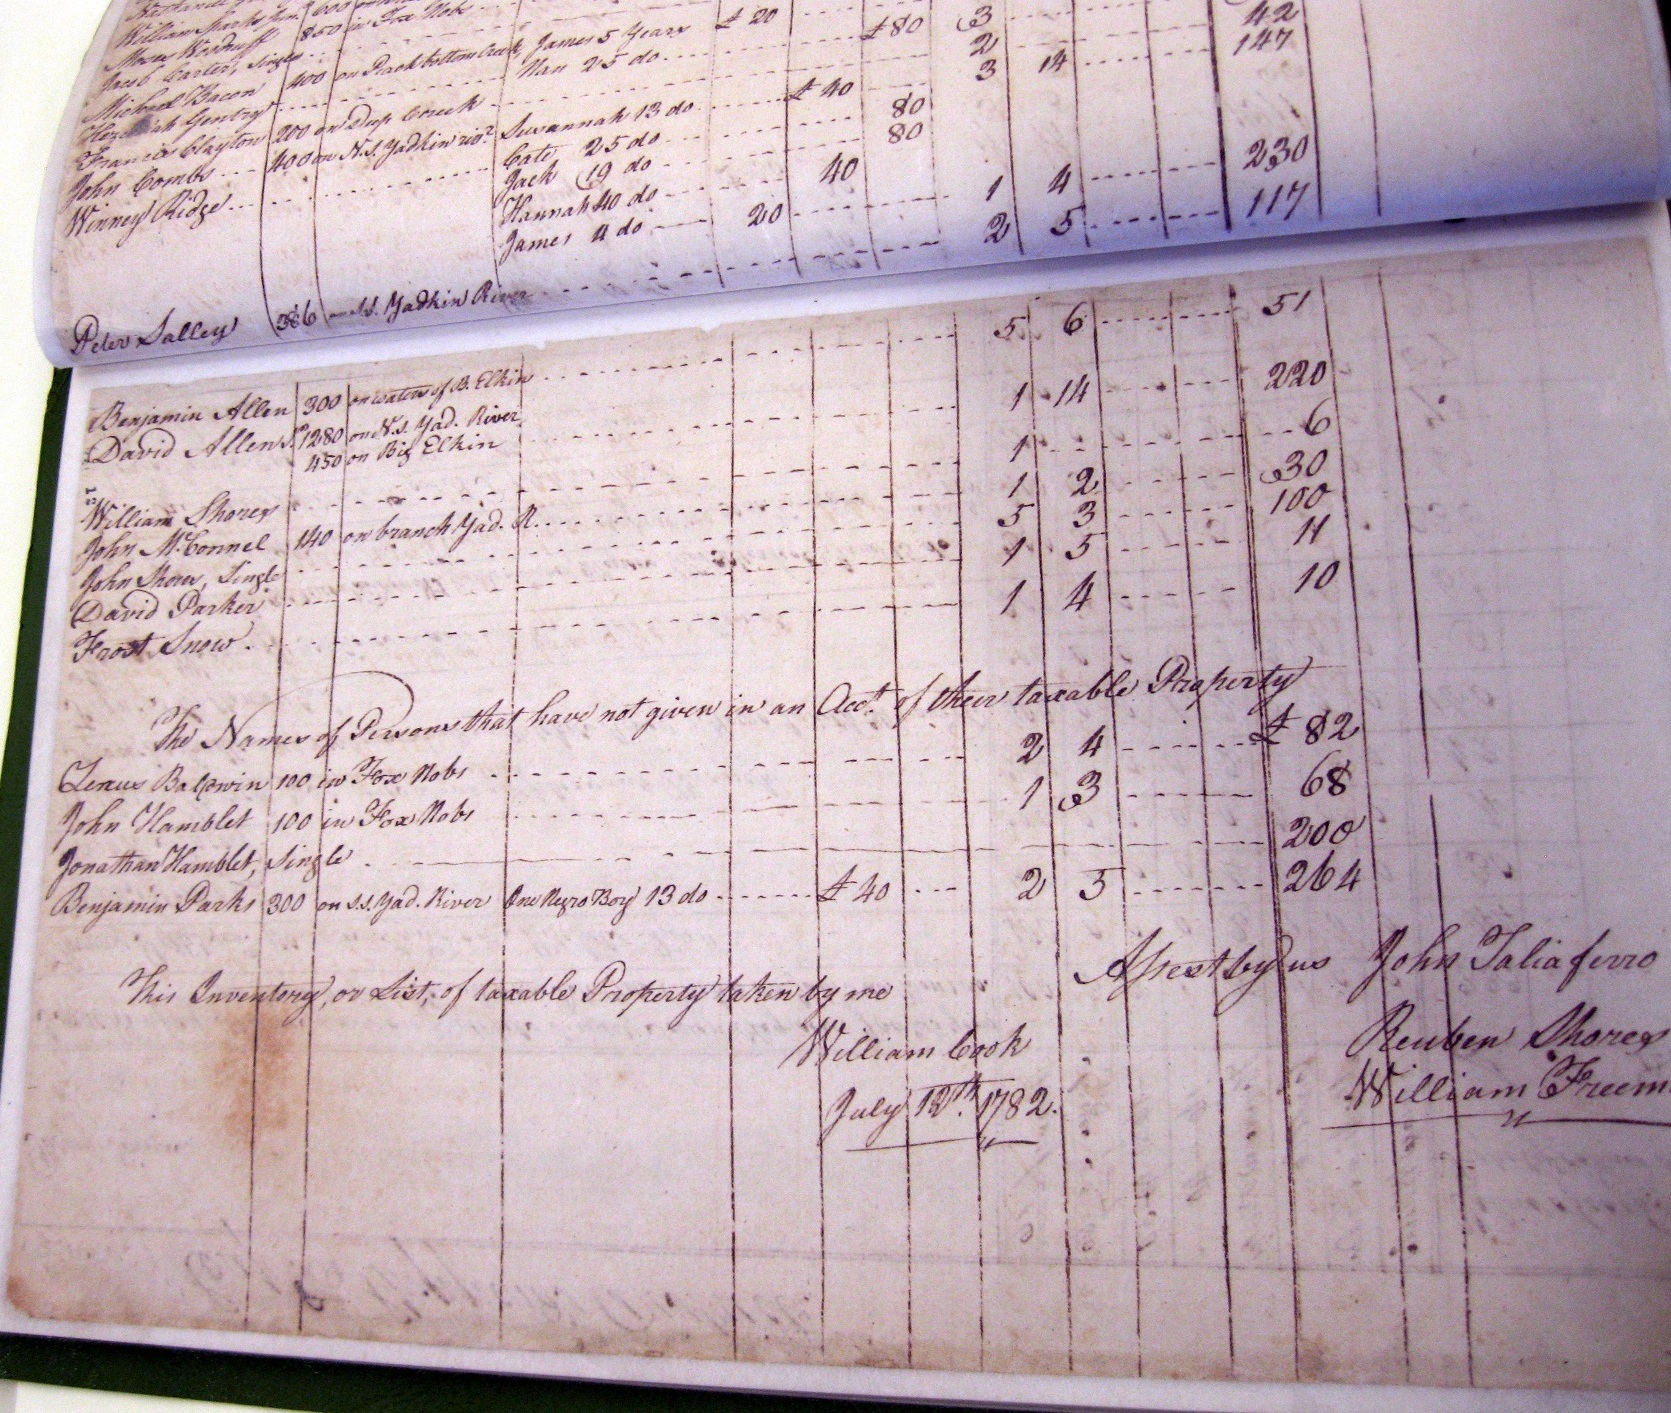 William Sparks Jun.
Moses Woodruff 850 in Fox Nobs
Jacob Carter, Single
Michael Bacon 400 on Rockbottom Creek James 5 Years £ 20 3 42
Nan 25 do £80 2 147
Gentry 3 14
Francis Clayton 200 on Deep Creek
John Combs 400 on N.S. Yadkin riv. Susannah 13 do £ 40
Winney Ridge Cate 25 do 80
Jack 19 do 80
Hannah 40 do 40 1 4 230
James 4 do 20 2 5 117
Peter Salley 386 on S.S. Yadkin River
5 6 51
Benjamin Allen 300 on waters of B. Elkin 1 14 220
David Allen Sr 1280 on N.S. Yad. River
450 on Big Elkin 1 6
William Shores 1 2 30
John McConnel 140 on branch Yad. R. 5 3 100
John Shores, Single 1 5 11
David Parker 1 4 10
Frost Snow
The Names of Persons that have not given in an Acct. of their taxable Property
Baldwin 100 in Fox Nobs 2 4 £ 82
John Hamblet 100 in Fox Nobs 1 3 68
Jonathan Hamblet, Single 200
Benjamin Parks 300 on S.S. Yad. River One Negro Boy 13 do £ 40 2 5 264
Assest by us John Taliaferro
This Inventory, or List, of taxable Property taken by me
Reuben Shores
William Cook
William Freem
July 12th. 1782.